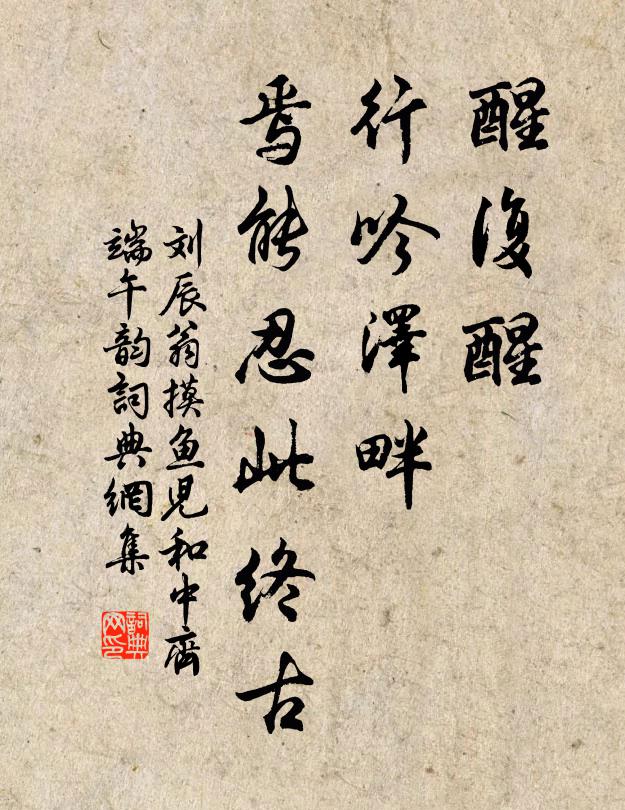 醒復醒
行吟澤畔
焉能忍此終古
刘辰翁摸鱼児和中齋
端午韵詞典網集
詞典
网印